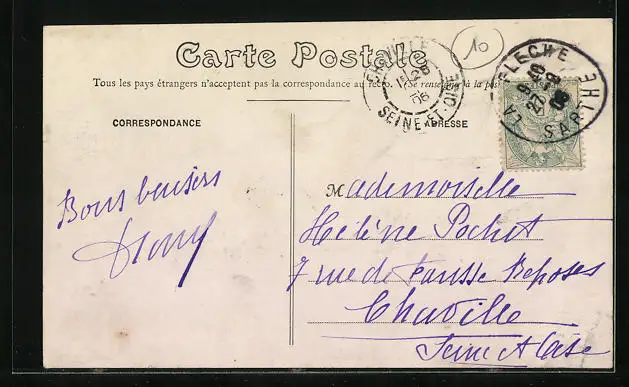 Carte Postale
10
Tous les pays étrangers n'acceptent pas la correspondance au recto. (Se renseigner à la poste
CHAVILLE
SEINE-ET-OISE
06
LA FLECHE
9 40
27
06
SARTHE
CORRESPONDANCE
ADRESSE
Bons baisers
Mademoiselle
Hélène Pochet
7 rue de Fausse Reposes
Chaville
Seine et Oise